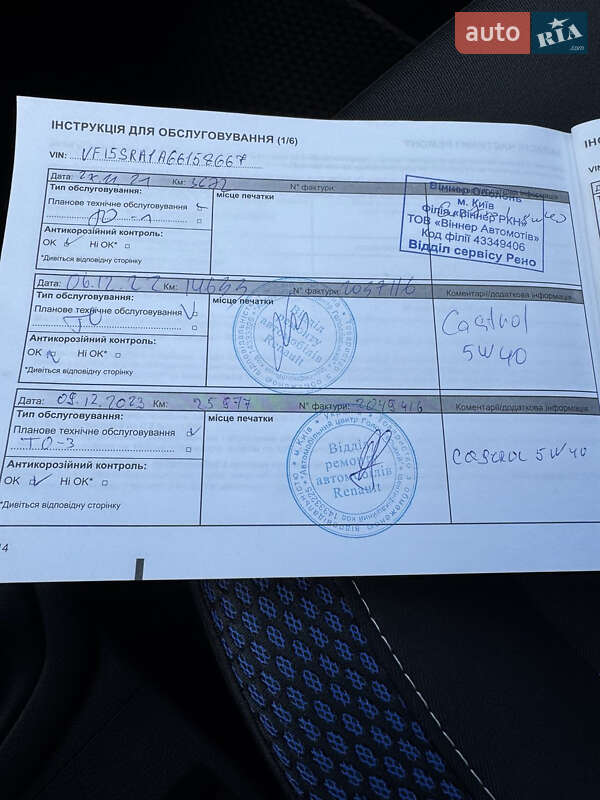 auto RIA.com
ІНСТРУКЦІЯ ДЛЯ ОБСЛУГОВУВАННЯ (1/6)
VIN: VF15SRA1A66158667
Дата: Км: N° фактури:
Тип обслуговування: місце печатки
Планове технічне обслуговування
ТО-1
Антикорозійний контроль:
ОК Ні ОК*
*Дивіться відповідну сторінку
Віннер Оболонь
м. Київ
Філія «Віннер РКН»
ТОВ «Віннер Автомотів»
Код філії 43349406
Відділ сервісу Рено
Дата: 06.12.22 Км: N° фактури:
Тип обслуговування: місце печатки Коментарії/додаткова інформація
Планове технічне обслуговування
ТО
Антикорозійний контроль:
ОК Ні ОК*
*Дивіться відповідну сторінку
Renault
Castrol
5W40
Дата: 09.12.2023 Км: 25877 N° фактури:
Тип обслуговування: місце печатки Коментарії/додаткова інформація
Планове технічне обслуговування
ТО-3
Антикорозійний контроль:
ОК Ні ОК*
*Дивіться відповідну сторінку
Відділ
ремонту
автомобілів
Renault
Castrol 5W40
14